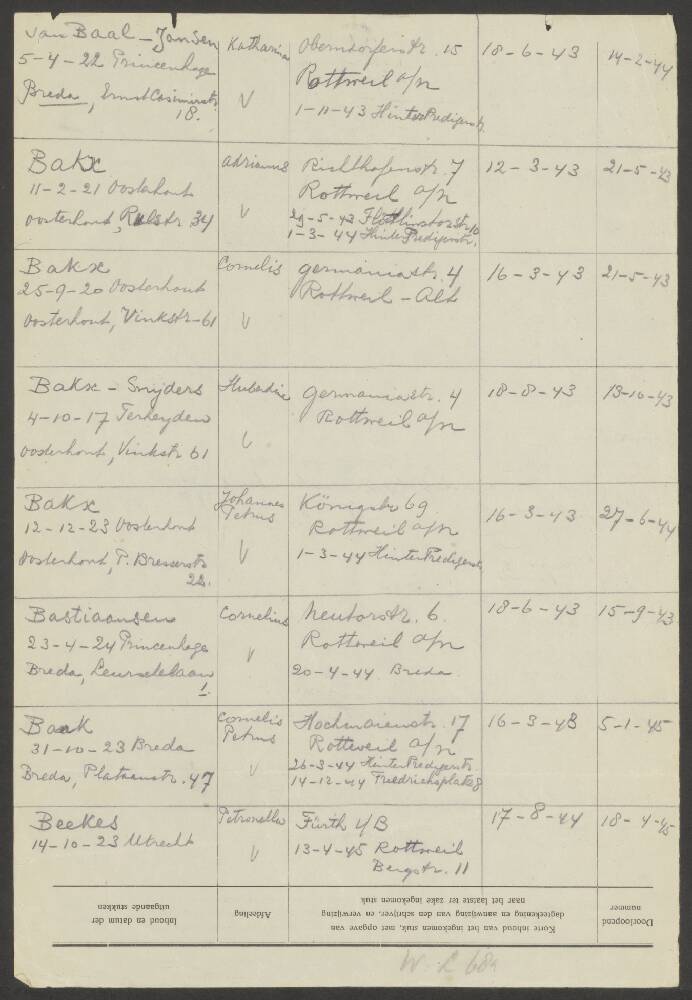 van Baal - Jansen Katharina Oberndorferstr. 15 18-6-43 14-2-44
5-4-22 Princenhage Rottweil a/n
Breda, Ernst Casimirstr. V
18. 1-11-43 Hinter Predigerstr.
Bakx Adrianus Richthofenstr. 7 12-3-43 21-5-43
11-2-21 Oosterhout Rottweil a/n
Oosterhout, Rulstr 34 V 29-5-43 10
1-3-44 Hinter Predigerstr.
Bakx Cornelis Germaniastr. 4 16-3-43 21-5-43
25-9-20 Oosterhout Rottweil - Alt
Oosterhout, Vinkstr-61 V
Bakx - Snijders Hubertine Germaniastr. 4 18-8-43 13-10-43
4-10-17 Terheyden Rottweil a/n
Oosterhout, Vinkstr 61 V
Bakx Johannes Petrus Königstr 69 16-3-43 27-6-44
12-12-23 Oosterhout Rottweil a/n
Oosterhout, P. Bresserstr V 1-3-44 Hinter Predigerstr
22.
Bastiaansen Cornelius Neutorstr. 6. 18-6-43 15-9-43
23-4-24 Princenhage Rottweil a/n
Breda, Leursebaan V 20-4-44 Breda
1.
Baak Cornelis Petrus Hochmaienstr. 17 16-3-43 5-1-45
31-10-23 Breda Rottweil a/n
Breda, Plataanstr. 47 V 26-3-44 Hinter Predigerstr.
14-12-44 Friedrichsplatz 8
Beekes Petronella Fürth i/B 17-8-44 18-4-45
14-10-23 Utrecht V 13-4-45 Rottweil
Bergstr. 11
Doorloopend nummer
Korte inhoud van het ingekomen stuk, met opgave van
dagteekening en aanwijzing van den schrijver, en verwijzing
naar het laatste ter zake ingekomen stuk
Afdeeling
Inhoud en datum der
uitgaande stukken